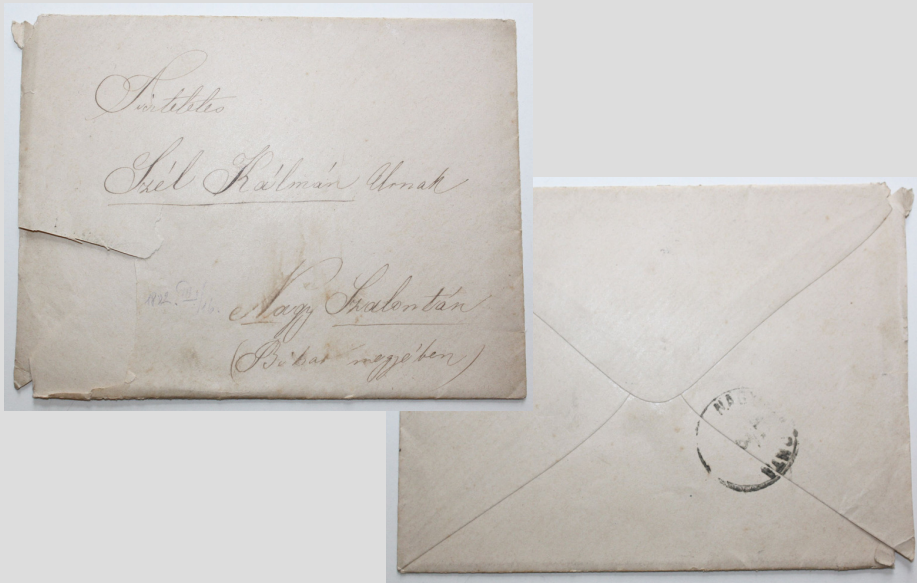 Tiszteletes
Szél Kálmán Urnak
Nagy Szalontán
(Bihar megyében)
NAGY